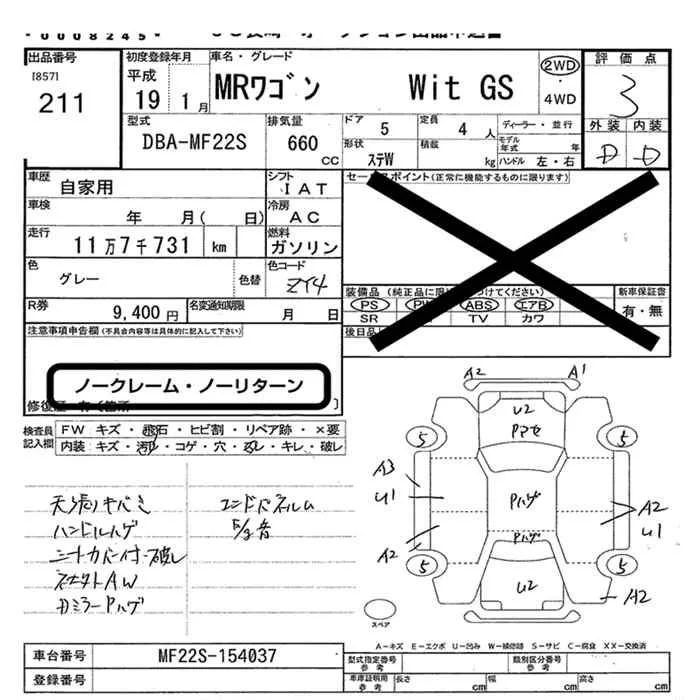 00008245
出品番号 初度登録年月 車名・グレード 2WD 評価点
[857] 平成 4WD 3
211 19年 1月 MRワゴン Wit GS 外装 内装
D D
型式 排気量 ドア 5 定員 4人 ディーラー・並行
DBA-MF22S 660CC 形状 ステW 積載 kg モデル年式 年
ハンドル 左・右
車歴 自家用 シフト IAT セールスポイント(正常に機能するものに限ります)
車検 年 月( 日) 冷房 AC
走行 11万7千731 km 燃料 ガソリン
色 グレー 色替 色コード ZY4
装備品 (純正品に限 づけてください) 新車保証書
PS PW ABS エアB 有・無
SR TV カワ
R券 9,400円 名変通知期限 月 日
後日品
注意事項申告欄(不具合内容等は具体的に記入して下さい)
ノークレーム・ノーリターン
修復歴 有(箇所 )
検査員記入欄 FW キズ・飛石・ヒビ割・リペア跡・×要
内装 キズ・汚レ・コゲ・穴・ヌレ・キレ・破レ
天張りキバミ
ハンドルハゲ
シートカバー付・破レ
社外AW
ドミラーPハゲ
エンドパネルム
F/g音
A2 A1
U2
Pマセ
5 5
A3
U1
Pハゲ
A2
U1
Pハゲ
A2
5 5
U2
A2
スペア
A-キズ E-エクボ U-凹み W-補修跡 S-サビ C-腐食 XX-交換済
車台番号 MF22S-154037 型式指定番号 参考 類別区分番号 参考
登録番号 車庫証明用 参考 長さ cm 幅 cm 高さ cm